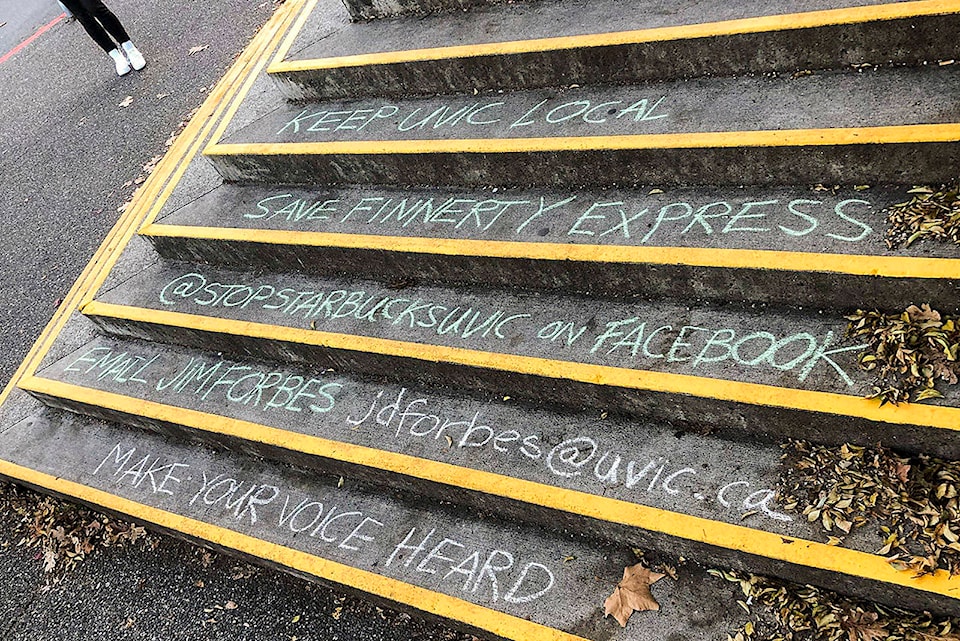 KEEP UVIC LOCAL
SAVE FINNERTY EXPRESS
@STOPSTARBUCKSUVIC ON FACEBOOK
EMAIL JIM FORBES jdforbes@uvic.ca
MAKE YOUR VOICE HEARD